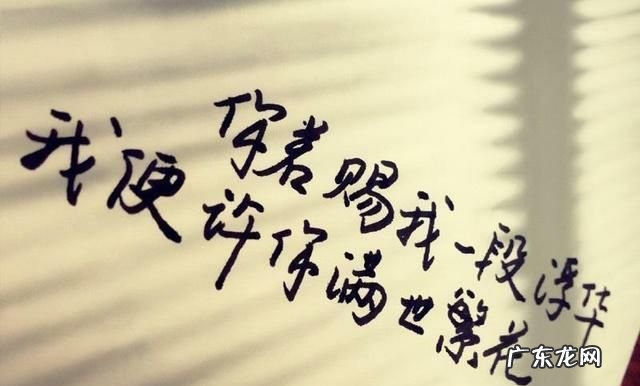 你若赐我一段浮华
我便许你满世繁花
广东龙网